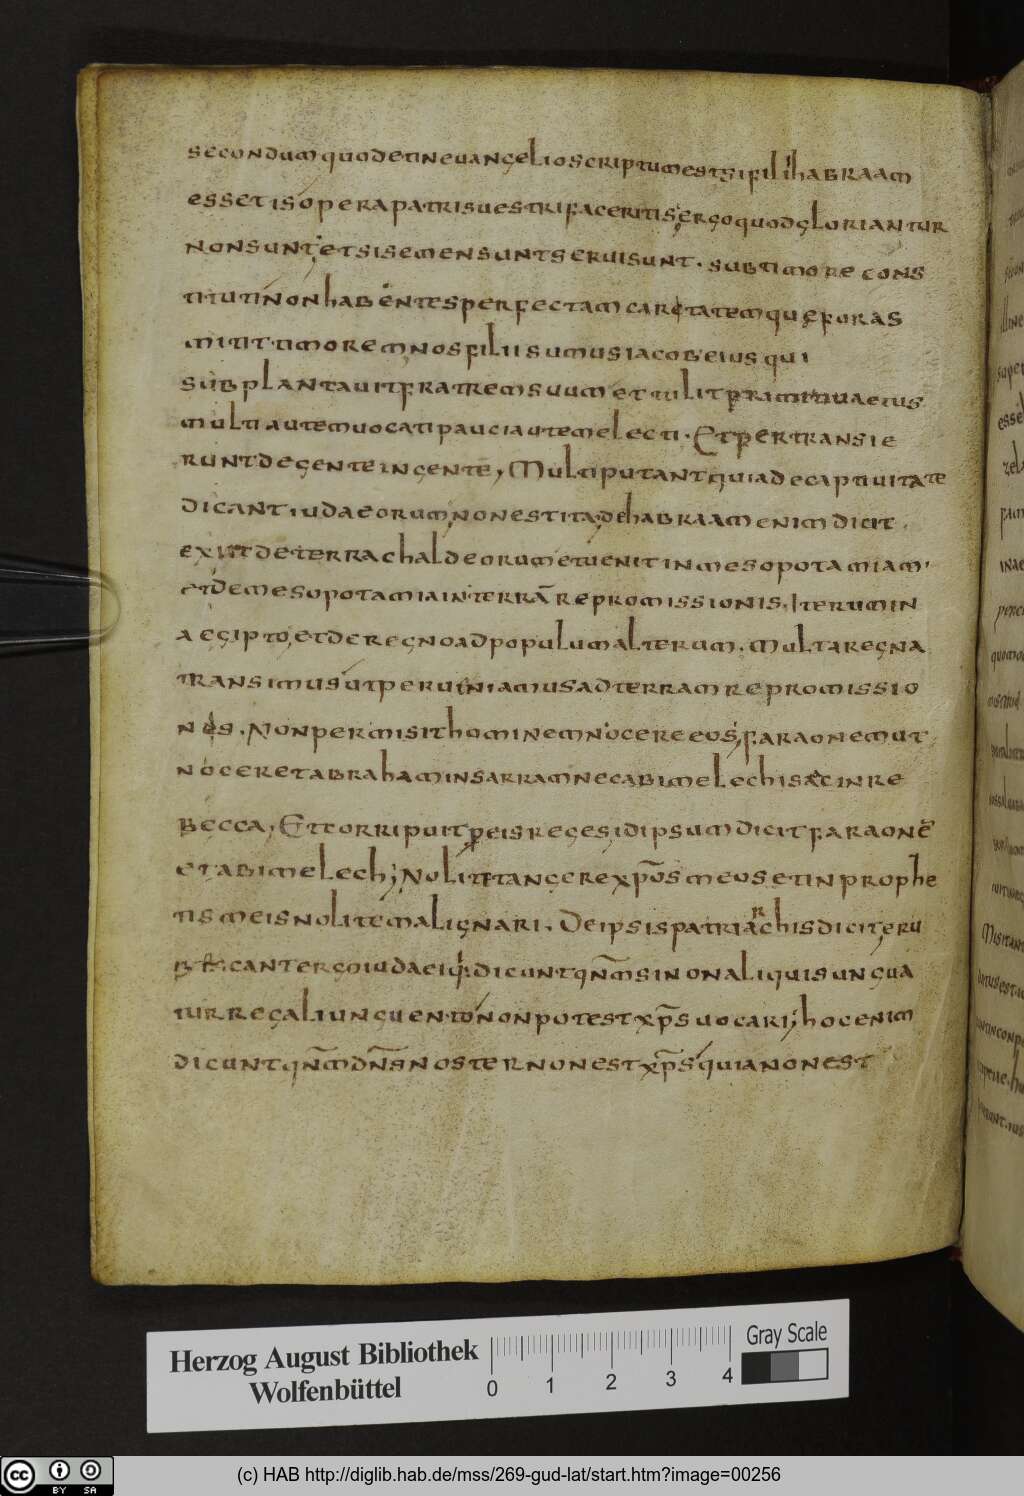 secondum quod et in euangelio scriptum est si filii habraam
essetis opera patris uestri faceritis, ergo quod gloriantur
non sunt, et si semen sunt serui sunt. sub timore cons
tituti non habentes perfectam caritatem que foras
mittit timorem nos filii sumus iacob eius qui
subplantauit fratrem suum et tulit primitiua eius
multi autem uocati pauci autem electi. Et pertransie
runt de gente in gente, Multi putant quia de captiuitate
dicant iudaeorum, non est ita, de habraam enim dicit
exiit de terra chaldeorum et uenit in mesopotamiam.
et de mesopotamia in terrā repromissionis. Iterum in
aegipto, et de regno ad populum alterum. Multa regna
transimus ut peruiniamus ad terram repromissio
nes. Non permisit hominem nocere eos, faraonem ut
noceret abraham in sarram nec abimelech isac in re
becca, Et corripuit p eis reges id ipsum dicit faraonē
et abimelech, Nolite tangere xp̄os meos et in prophe
tis meis nolite malignari. De ipsis patriarchis dicit, eru
cant ergo iudaei dicunt qn̄m si non aliquis ungua
tur regali unguento non potest xp̄s uocari, hoc enim
dicunt qn̄m dn̄s noster non est xp̄s quia non est
Herzog August Bibliothek
Wolfenbüttel
0 1 2 3 4
Gray Scale
cc BY SA
(c) HAB http://diglib.hab.de/mss/269-gud-lat/start.htm?image=00256